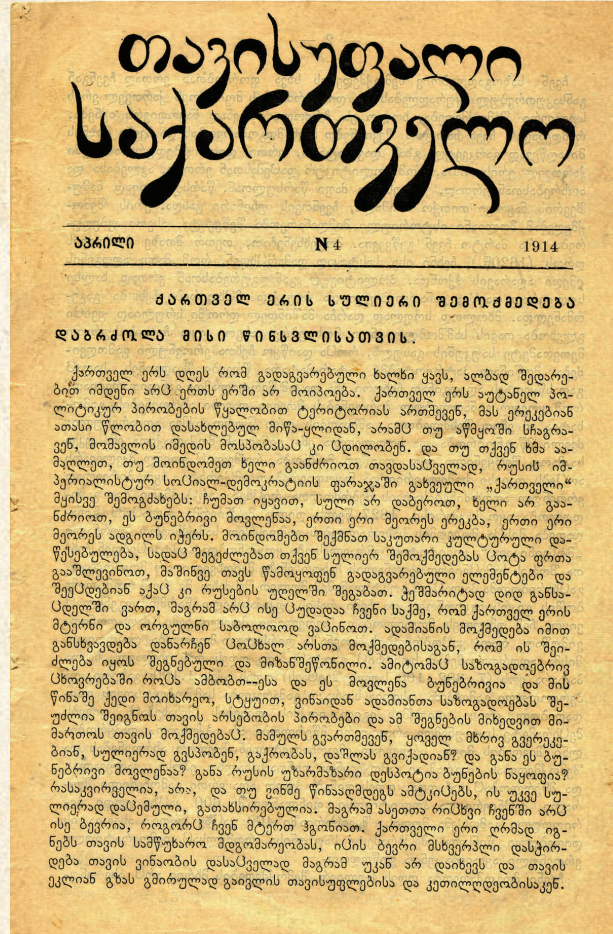 თავისუფალი
საქართველო
აპრილი N 4 1914
ქართველ ერის სულიერი შემოქმედება
დაბრძოლა მისი წინსვლისათვის.
ქართველ ერს დღეს რომ გადაგვარებული ხალხი ყავს, ალბად შედარე-
ბით იმდენი არც ერთს ერში არ მოიპოება. ქართველ ერს აუტანელ პო-
ლიტიკურ პირობების წყალობით ტერიტორიას ართმევენ, მას ერეკებიან
ათასი წლობით დასახლებულ მიწა-ყლიდან, არამც თუ აწმყოში სჩაგრა-
ვენ, მომავლის იმედის მოსპობასაც კი ცდილობენ. და თუ თქვენ ხმა აი-
მაღლეთ, თუ მოინდომეთ ხელი გაანძრიოთ თავდასაცველად, რუსის იმ-
პერიალისტურ სოციალ-დემოკრატიის ფარაჯაში გახვეული „ქართველი“
მყისვე შემოგძახებს: ჩუმათ იყავით, სული არ დაბეროთ, ხელი არ გაა-
ნძრიოთ, ეს ბუნებრივი მოვლენაა, ერთი ერი მეორეს ერეკება, ერთი ერი
მეორეს ადგილს იჭერს. მოინდომებთ შექმნათ საკუთარი კულტურული და-
წესებულება, სადაც შეგეძლებათ თქვენ სულიერ შემოქმედებას ცოტა ფრთა
გააშლევინოთ, მაშინვე თავს წამოყოფენ გადაგვარებული ელემენტები და
შეეცდებიან აქაც კი რუსების უღელში შეგაბათ. ჭეშმარიტად დიდ განსა-
ცდელში ვართ, მაგრამ არც ისე ცუდადაა ჩვენი საქმე, რომ ქართველ ერის
მტერნი და ორგულნი საბოლოოდ ვაცინოთ. ადამიანის მოქმედება იმით
განსხვავდება დანარჩენ ცოცხალ არსთა მოქმედებისაგან, რომ ის შეი-
ძლება იყოს შეგნებული და მიზანშეწონილი. ამიტომაც საზოგადოებრივ
ცხოვრებაში როცა ამბობთ--ესა და ეს მოვლენა ბუნებრივია და მის
წინაშე ქედი მოიხარეო, სტყუით, ვინაიდან ადამიანთა საზოგადოებას შე-
უძლია შეიგნოს თავის არსებობის პირობები და ამ შეგნების მიხედვით მი-
მართოს თავის მოქმედებაც. მამულს გვართმევენ, ყოველ მხრივ გვერეკე-
ბიან, სულიერად გვსპობენ, გაქრობას, დაშლას გვიქადიან? და განა ეს ბუ-
ნებრივი მოვლენაა? განა რუსის უზარმაზარი დესპოტია ბუნების ნაყოფია?
რასაკვირველია, არა, და თუ ვინმე წინააღმდეგს ამტკიცებს, ის უკვე სუ-
ლიერად დაცემული, გათახსირებულია. მაგრამ ასეთთა რიცხვი ჩვენში არც
ისე ბევრია, როგორც ჩვენ მტერთ ჰგონიათ. ქართველი ერი ღრმად იგ-
ნებს თავის სამწუხარო მდგომარეობას, იცის ბევრი მსხვერპლი დასჭირ-
დება თავის ვინაობის დასაცველად მაგრამ უკან არ დაიხევს და თავის
ეკლიან გზას გმირულად გაივლის თავისუფლებისა და კეთილღდეობისაკენ.